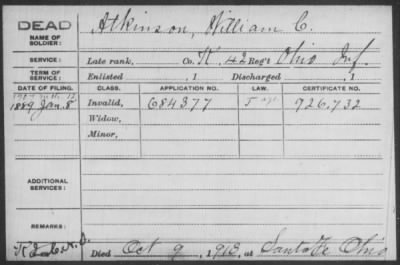 DEAD
NAME OF SOLDIER: Atkinson, William C.
SERVICE: Late rank, Co. K. 42 Reg't Ohio Inf.
TERM OF SERVICE: Enlisted , 1 Discharged , 1
DATE OF FILING. CLASS. APPLICATION NO. LAW. CERTIFICATE NO.
1889 Jan. 8 Invalid, 684377 926.732
Widow,
Minor,
ADDITIONAL SERVICES:
REMARKS:
Died Oct 9, 1913, at Santa Fe Ohio